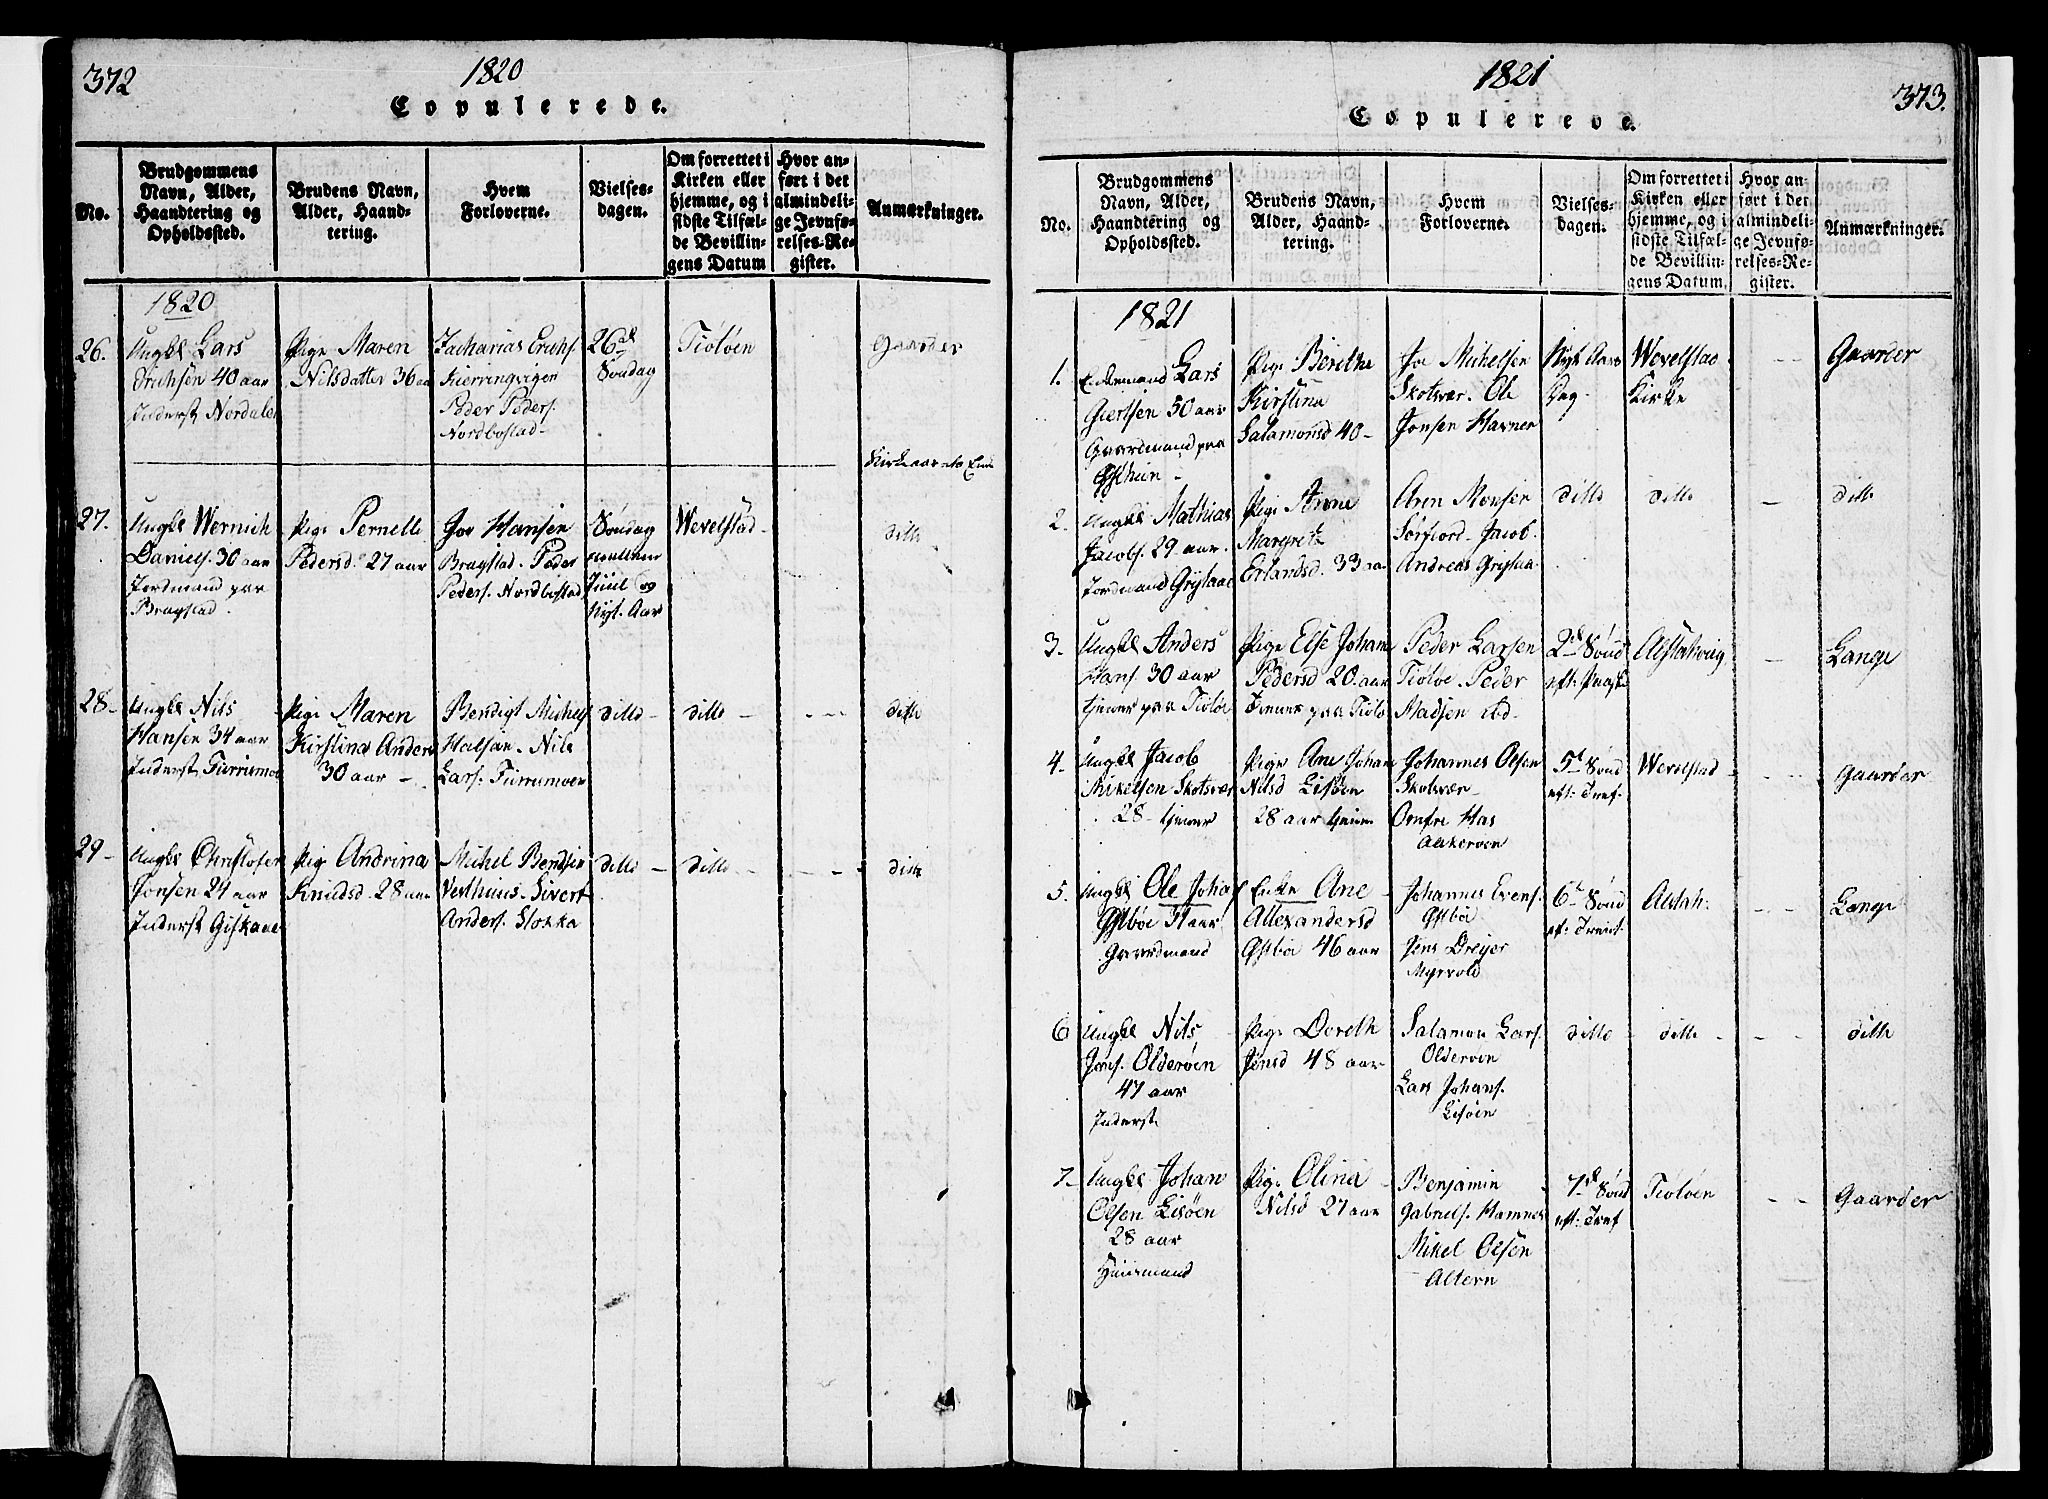 372
1820
Copulerede.
No.
Brudgommens
Navn, Alder,
Haandtering og
Opholdssted.
Brudens Navn,
Alder, Haand-
tering.
Hvem
Forloverne.
Vielses-
dagen.
Om forrettet i
Kirken eller
hjemme, og i
sidste Tilfæl-
de Bevillin-
gens Datum
Hvor an-
ført i det
almindeli-
ge Jevnfø-
relses-Re-
gister.
Anmærkninger.
1820
26.
Ungkl Lars
Erichsen 40 aar
Inderst Nordalen
Pige Maren
Nilsdatter 36 aar
Zacharias Erichs.
Kierringvigen
Peder Peders.
Nordbostad
26de
Søndag
Tiøtøen
Gaarder
Kirkeaarets Ende
27.
Ungkl Wernich
Daniels. 30 aar
Jordmand paa
Bragstad.
Pige Pernelle
Pedersd. 27 aar
Joe Hansen
Bragstad. Peder
Peders. Nordbostad
Søndag
mellem
Juul og
Nyt. Aar
Wevelstad
ditto
28
Ungkl Nils
Hansen 34 aar
Inderst Furrumoe
Pige Maren
Kirstina Anders
30 aar
Bendigt Michels
Halsan. Nils
Lars. Furrumoen
ditto
ditto
ditto
29
Ungkl Christofer
Jonsen 24 aar
Inderst Giskaae
Pige Andrina
Knudsd 28 aar
Michel Bendsen
Vesthuus. Sivert
Anders. Stokka
ditto
ditto
ditto
1821
373.
Copulerede.
No.
Brudgommens
Navn, Alder,
Haandtering og
Opholdssted.
Brudens Navn,
Alder, Haand-
tering.
Hvem
Forloverne.
Vielses-
dagen.
Om forrettet i
Kirken eller
hjemme, og i
sidste Tilfæl-
de Bevillin-
gens Datum.
Hvor an-
ført i det
almindeli-
ge Jevnfø-
relses-Re-
gister.
Anmærkninger.
1821
1.
Enkemand Lars
Giertsen 50 aar
Gaardmand paa
Pige Berethe
Kirstina
Salamonsd 40
Joe Michelsen
Skotsvær. Ole
Jonsen Havnen
Nyt Aars
Dag
Wevelstad
Kirke
Gaarder
2.
Ungkl Mathias
Jacobs. 29 aar.
Jordmand Grytaae
Pige Anne
Margret
Erlandsd. 33 aar
Aren Monsen
Sørfiord. Jacob
Andreas Grytaa
ditto
ditto
ditto
3.
Ungkl Anders
Hans. 30 aar
tiener paa Tiøtøe
Pige Else Johan
Pedersd 20 aar
Tiener paa Tiøtø
Peder Larsen
Tiøtøe. Peder
Madsen ibd
2de Sønd
eft. Paaske
Alstahoug
Lange
4
Ungkl Jacob
Mikelsen Skotsvær
28 tiener
Pige Ane Johan
Nilsd Lisøen
28 aar tiener
Johannes Olsen
Skotsvær
Onfre Has
Aakerøen
5te Sønd
eft: Tref.
Wevelstad
Gaarder
5.
Ungkl Ole Johas
Østbøe 31 aar
Gaardmand
Enke Ane
Allexandersd
Østbøe 46 aar
Johannes Evens.
Østbøe
Jens Dreyer
Myrvold
6te Sønd
ef: Trinit.
Alstah:
Lange
6
Ungkl Nils
Jons. Olderøen
47 aar
Inderst
Pige Doreth
Jensd 48 aar
Salamon Lars.
Olderøen
Lars Johans.
Lisøen
ditto
ditto
ditto
7
Ungkl Johan
Olsen Lisøen
28 aar
Huusmand
Pige Olina
Nilsd 27 aar
Benjamin
Gabriels. Hamnes
Mikel Olsen
Altern
7de Sønd
eft: Tref
Tiøtøen
Gaarder